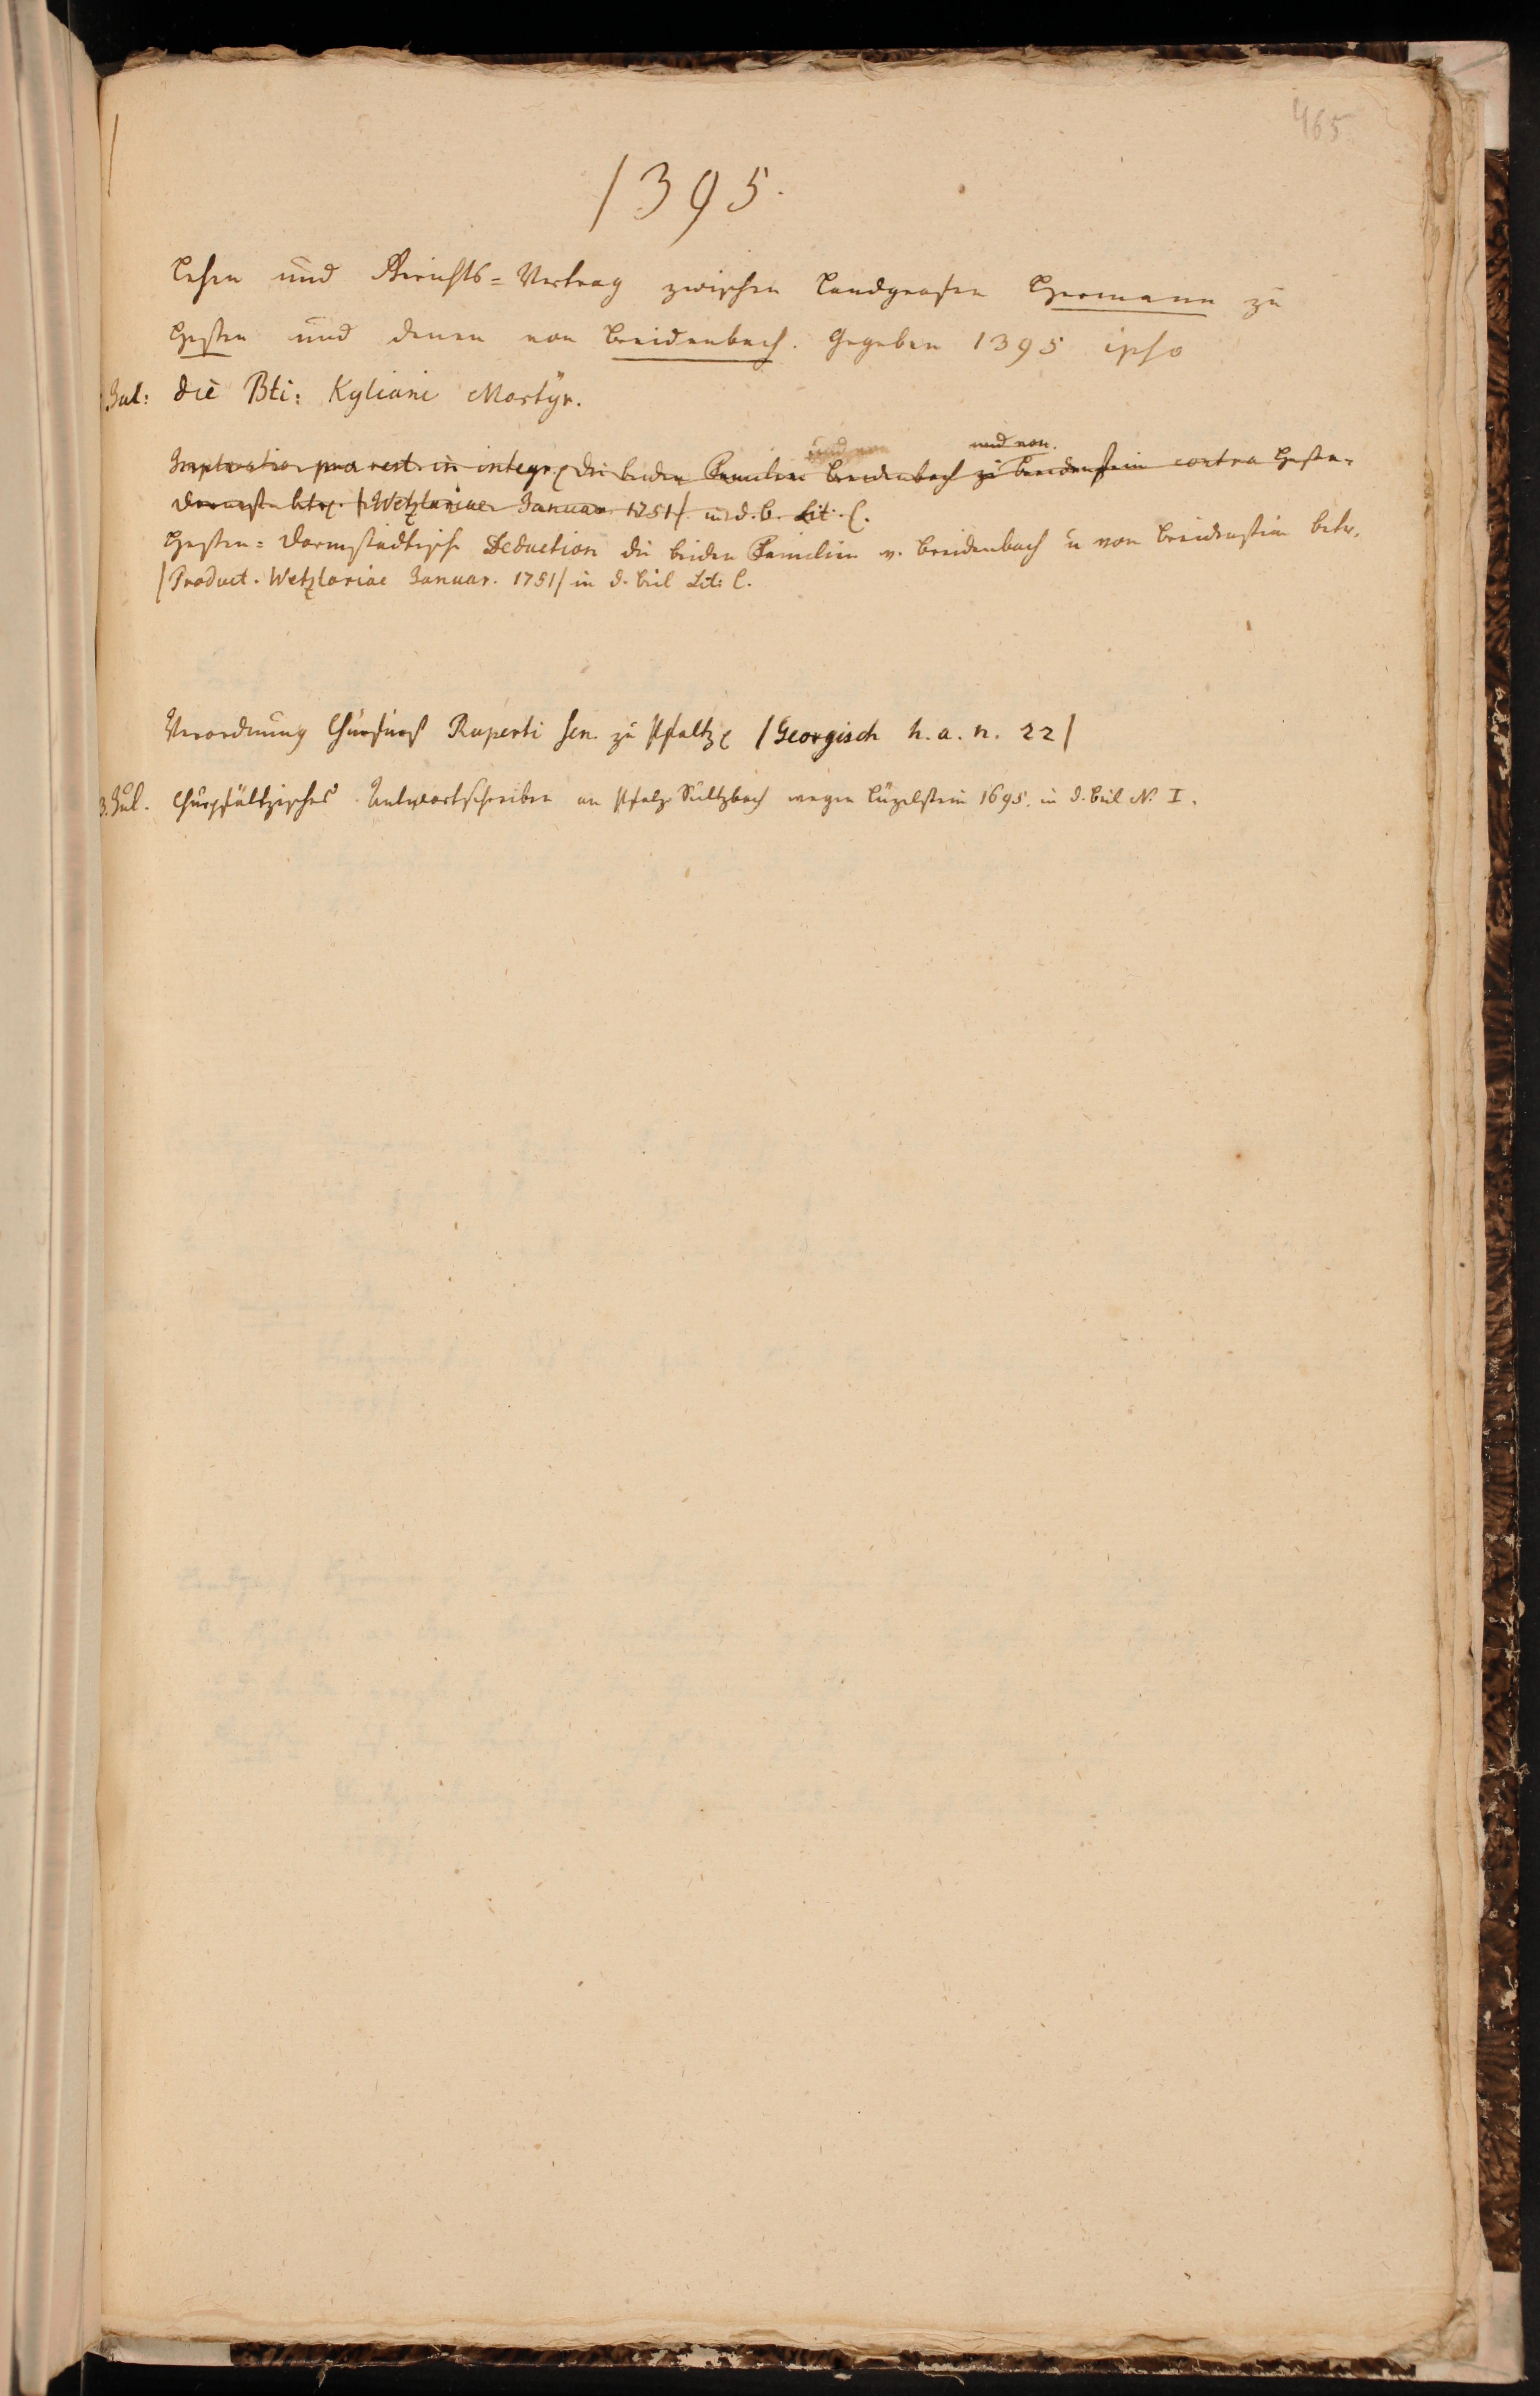 465
1395.
Lehen und Gerichts-Vertrag zwischen Landgrafen Hermann zu
Hessen und denen von Breidenbach. Gegeben 1395 ipso
Jul: die Bti: Kyliani Martyr.
und von
Imploratio pro rest. in integr. die beiden Familien Breidenbach zu Breidenstein contra Hessen-
Darmst. betr. /Wetzlariae Januar 1751/ in d. B. Lit. C.
Hessen-Darmstädtische Deduction die beiden Familien v. Breidenbach u von Breidenstein betr.
/Product. Wetzlariae Januar. 1751/ in d. Beil Lit: C.
Verordnung Churfürst Ruperti sen. zu Pfaltz /Georgisch h. a. n. 22/
3. Jul. Churpfältzisches Antwortschreiben an Pfalz Sultzbach wegen Lützelstein 1695. in d. Beil N. I.